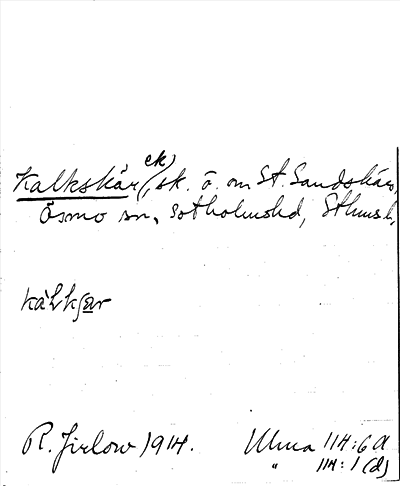 Kalkskär (ek), sk. ö. om St. Sandskär,
Ösmo sn, Sotholmshd, Sthmsl.
R. Jirlow 1914. Ulma 114:6 a
" 114:1 (d)